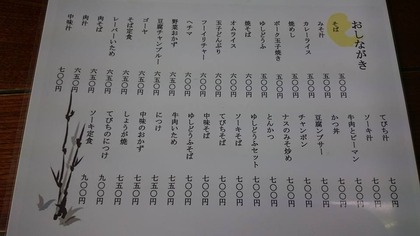 おしながき
そば 五〇〇円
みそ汁 五〇〇円
カレーライス 五〇〇円
焼めし 五〇〇円
ポーク玉子焼き 五〇〇円
ゆしどうふ 五〇〇円
焼そば 五〇〇円
オムライス 五五〇円
玉子どんぶり 五五〇円
フーイリチャー 六五〇円
ヘチマ 六五〇円
野菜おかず 六五〇円
豆腐チャンプルー 六五〇円
ゴーヤ 六五〇円
そば定食 六五〇円
レーバーいため 六五〇円
肉そば 六五〇円
肉汁 六五〇円
中味汁 七〇〇円
てびち汁 七〇〇円
ソーキ汁 七〇〇円
牛肉とピーマン 七〇〇円
かつ丼 七〇〇円
豆腐ンブサー 七〇〇円
チャンポン 七〇〇円
ナスのみそ炒め 七〇〇円
とんかつ 七〇〇円
ゆしどうふセット 七〇〇円
ソーキそば 七〇〇円
てびちそば 七〇〇円
中味そば 七〇〇円
ゆしどうふそば 七〇〇円
牛肉いため 七〇〇円
につけ 七五〇円
中味のおかず 七五〇円
しょうが焼 七五〇円
てびちのにつけ 九〇〇円
ソーキ定食 九〇〇円